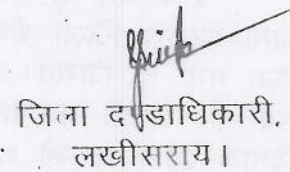 जिला दण्डाधिकारी,
लखीसराय।